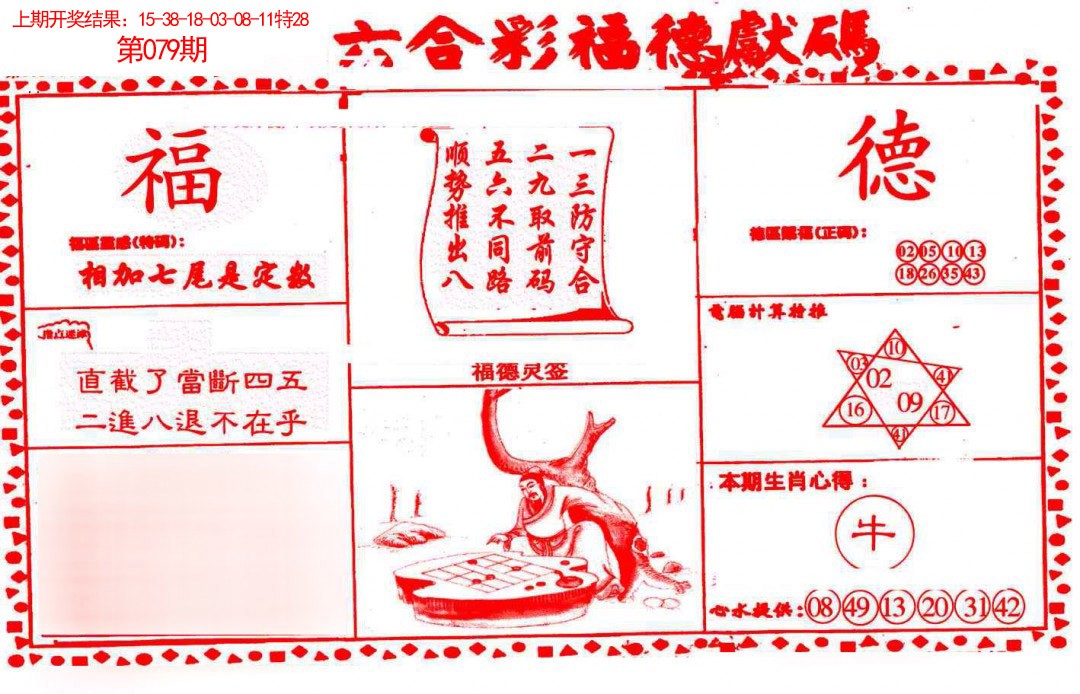 上期开奖结果：15-38-18-03-08-11特28
第079期
六合彩福德獻碼
福
福區靈感(特碼)：
相加七尾是定数
直截了當斷四五
二進八退不在乎
一三防守合
二九取前码
五六不同路
顺势推出八
福德灵签
德
德區賜福(正碼)：
02 05 10 13
18 26 35 43
電腦計算特推
10
03 02 41
16 09 17
41
本期生肖心得：
牛
心水提供：08 49 13 20 31 42